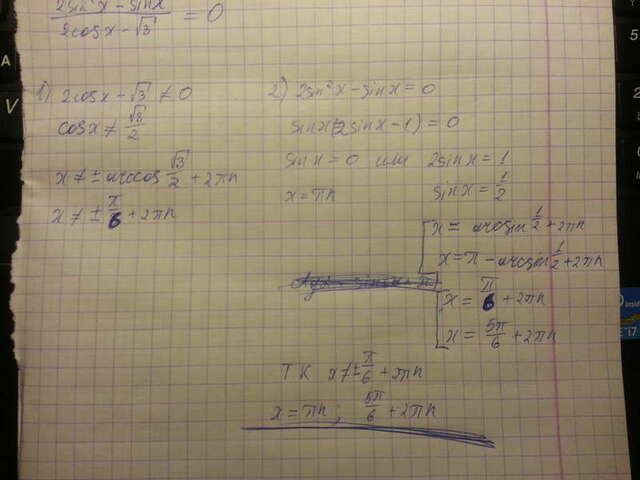 2sin²x − sinx / 2cosx − √3 = 0
1) 2cosx − √3 ≠ 0
cosx ≠ √3/2
x ≠ ± arccos √3/2 + 2πn
x ≠ ± π/6 + 2πn
2) 2sin²x − sinx = 0
sinx(2sinx − 1) = 0
sinx = 0 или 2sinx = 1
x = πn sinx = 1/2
x = arcsin 1/2 + 2πn
x = π − arcsin 1/2 + 2πn
x = π/6 + 2πn
x = 5π/6 + 2πn
ТК x ≠ ± π/6 + 2πn
x = πn ; 5π/6 + 2πn
A
V
5